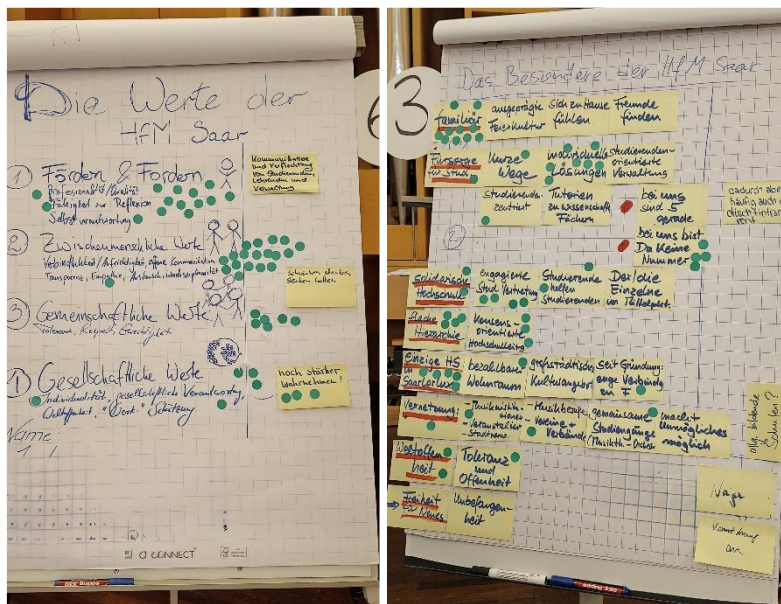 Die Werte der
HfM Saar
① Fördern & Fordern
Professionalität/Qualität
Fähigkeit zur Reflexion
Selbstverantwortung
Kommunikation
und
von Studierenden,
Lehrenden und
Verwaltung
② Zwischenmenschliche Werte
Verbindlichkeit/Aufrichtigkeit, offene Kommunikation
Transparenz, Empathie, Austausch,
③ Gemeinschaftliche Werte
Toleranz, Respekt, Gerechtigkeit
Gesellschaftliche Werte
Individualität, gesellschaftliche Verantwortung,
Weltoffenheit, "Wert"-Schätzung
noch stärker
wahrnehmen!
Name
CONNECT
3
Das Besondere der HfM Saar
familiär
ausgeprägte
Feierkultur
sich zu Hause
fühlen
Freunde
finden
Fürsorge
für Stud.
Kurze
Wege
individuelle
Lösungen
Studierenden-
orientierte
Verwaltung
Studierenden-
zentriert
Tutorien
zu wissenschaftl.
Fächern
bei uns
sind 5
gerade
dadurch aber
häufig auch
bei uns bist
Du keine
Nummer
Solidarische
Hochschule
engagierte
Stud. Vertretung
Studierende
helfen
Studierenden
Der/die
Einzelne
im Mittelpunkt
flache
Hierarchie
Konsens-
orientierte
Hochschulleitung
Einzige HS
in SaarLorLux
bezahlbarer
Wohnraum
großstädtisches
Kulturangebot
Seit Gründung:
enge Verbindung
zu F
Vernetzung:
Vereine +
Verbände
gemeinsame
Studiengänge
macht
unmögliches
möglich
Weltoffen-
heit
Toleranz
und
Offenheit
Freiheit
für Neues
Unbefangen-
heit
edding 330